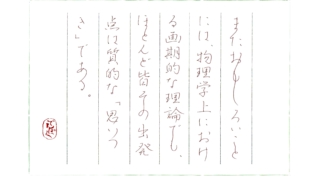 またおもしろいこと
には、物理学上におけ
る画期的な理論でも、
ほとんど皆その出発
点は質的な「思いつ
き」である。